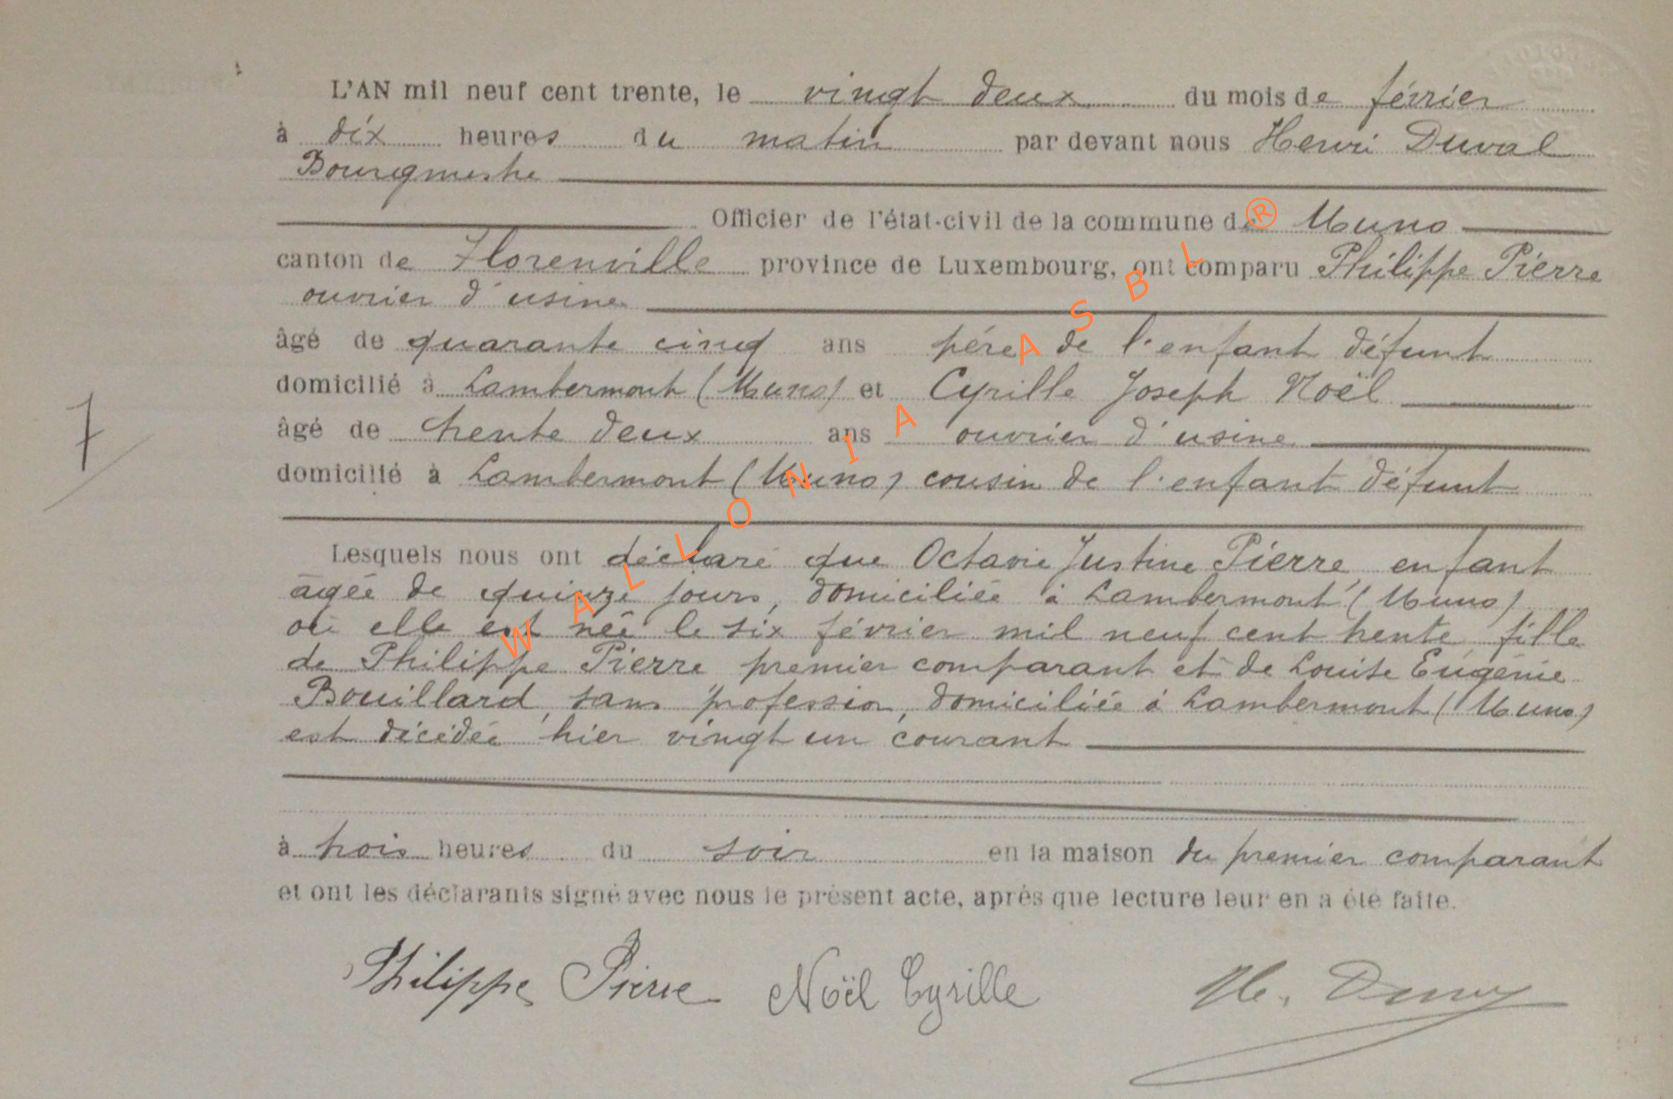 L'AN mil neuf cent trente, le vingt deux du mois de février
à dix heures du matin par devant nous Henri Duval
Bourgmestre
Officier de l'état-civil de la commune de Muno
canton de Florenville province de Luxembourg, ont comparu Philippe Pierre
ouvrier d'usine
âgé de quarante cinq ans père de l'enfant défunt
domicilié à Lambermont (Muno) et Cyrille Joseph Noël
7
âgé de trente deux ans ouvrier d'usine
domicilié à Lambermont (Muno) cousin de l'enfant défunt
Lesquels nous ont déclaré que Octavie Justine Pierre enfant
âgée de quinze jours, domiciliée à Lambermont (Muno)
où elle est née le six février mil neuf cent trente fille
de Philippe Pierre premier comparant et de Louise Eugénie
Bouillard, sans profession, domiciliée à Lambermont (Muno)
est décédée hier vingt un courant
à trois heures du soir en la maison du premier comparant
et ont les déclarants signé avec nous le présent acte, après que lecture leur en a été faite.
Philippe Pierre Noël Cyrille H. Duval
WALLONIA ASBL ®